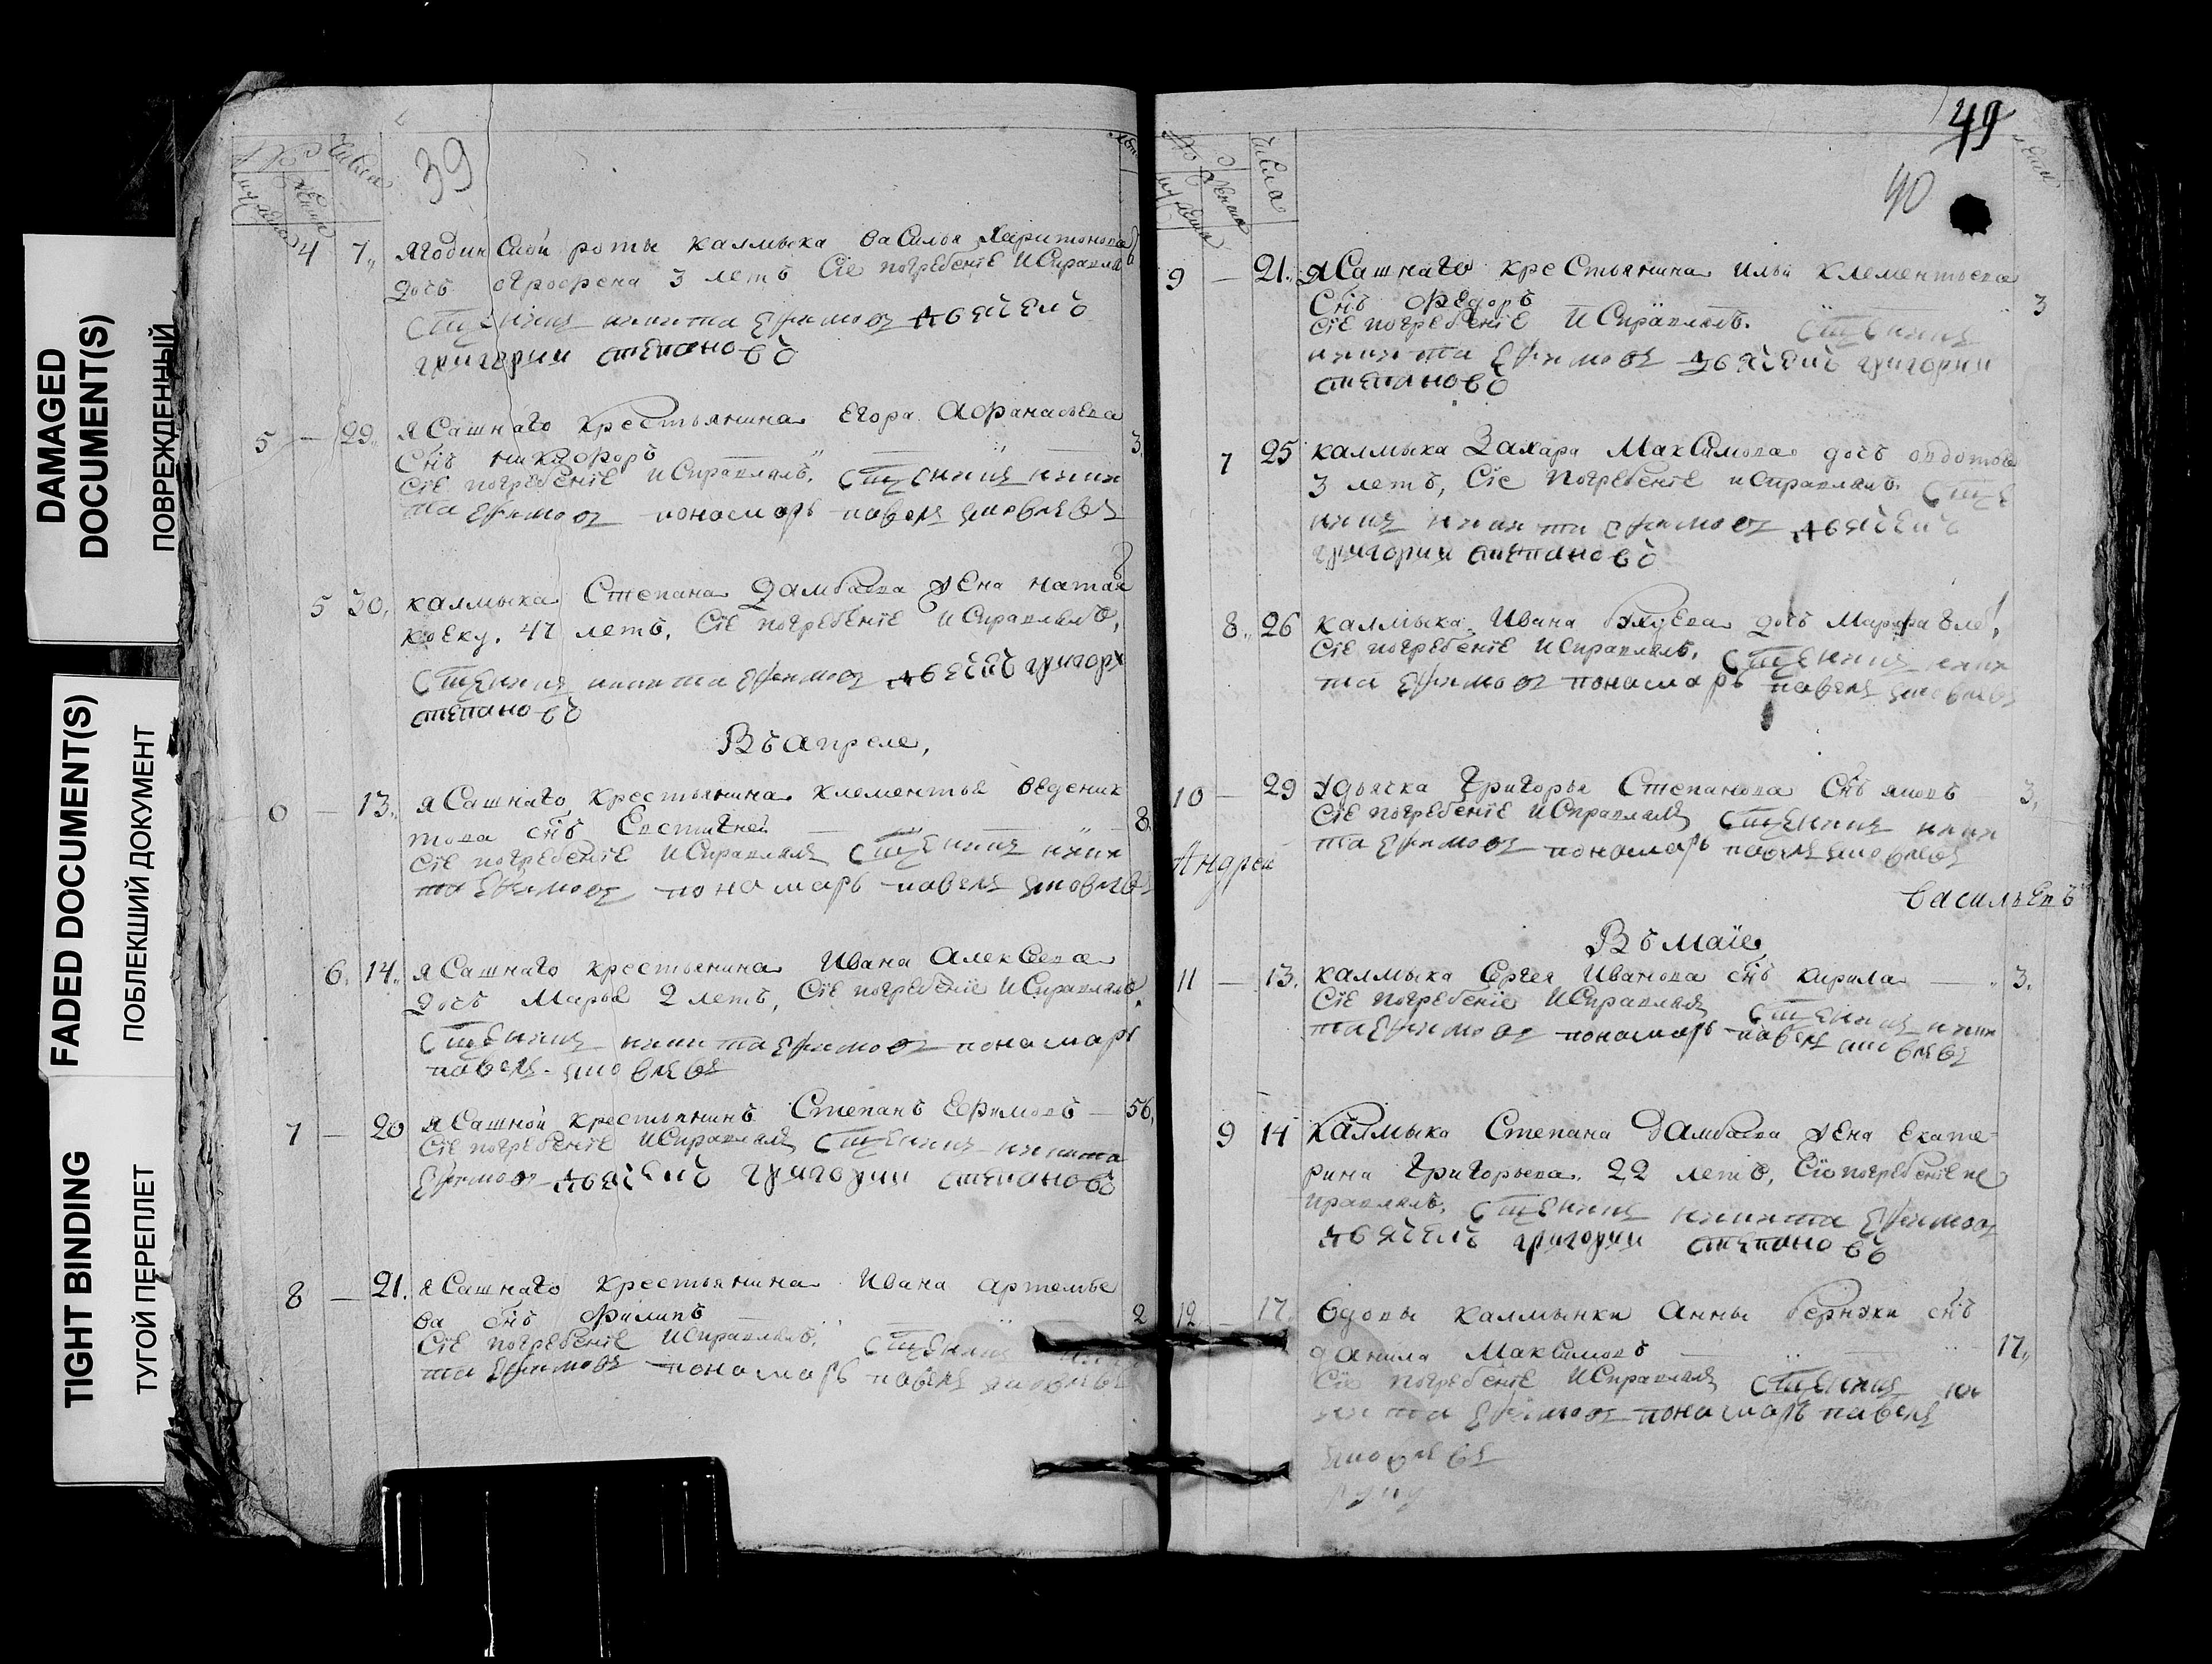 DAMAGED
DOCUMENT(S)
ПОВРЕЖДЕННЫЙ
FADED DOCUMENT(S)
ПОБЛЕКШИЙ ДОКУМЕНТ
TIGHT BINDING
ТУГОЙ ПЕРЕПЛЕТ
Числа
39
4 7,, Ягодинской роты калмыка василья Харитонова
дочь 3 летъ Сіе погребеніе исправлял
Сщенник никита ефимов дьячекъ
григории степановъ
5 — 29,, ясашнаго крестьянина Егора Афанасьева
Снъ никифоръ 3
Сіе погребеніе исправлялъ. Сщенник ники
та ефимов понамарь павел яковлев
5 30, калмыка Степана Дамбаева жена натал
47 летъ, Сіе погребеніе исправлялъ,
Сщенник никита ефимов дьячекъ григори
степановъ
Въ апреле,
13. ясашнаго крестьянина клементья веденик
това снъ Евстигней 8
Сіе погребеніе исправлялъ Сщенник ники
та ефимов понамарь павел яковлев
6. 14,, ясашнаго крестьянина Ивана Алексеева
дочь Марья 2 летъ, Сіе погребеніе исправлялъ,
Сщенник никита ефимов понамарь
павел яковлев
7 — 20 ясашной крестьянинъ Степанъ Ефимовъ — 56,
Сіе погребеніе исправлялъ Сщенник никита
ефимов дьячекъ григории степановъ
8 — 21. ясашнаго крестьянина Ивана артемье
ва снъ филипъ 2
Сіе погребеніе исправлялъ. Сщенник ники
та ефимов понамарь павел яковлев
49
40
Числа
9 — 21,, ясашнаго крестьянина ильи клементьева
Снъ федоръ 3
Сіе погребеніе исправлялъ. Сщенник
никита ефимов дьячекъ григории
степановъ
7 25 калмыка Захара Максимова дочь
3 летъ, Сіе погребеніе исправлялъ Сще
нник никита ефимов дьячекъ
григории степановъ
8,, 26 калмыка Ивана дочь Марфа
Сіе погребеніе исправлялъ, Сщенник ники
та ефимов понамарь павел яковлев
10 — 29 дьячка Григорья Степанова Снъ яковъ 3,
Сіе погребеніе исправлялъ Сщенник ники
та ефимов понамарь павел яковлев
Андрей
васильевъ
Въ маїе
11 — 13. калмыка Сергея Иванова снъ кирила — 3.
Сіе погребеніе исправлялъ Сщенник ники
та ефимов понамарь павел яковлев
9 14 калмыка Степана Дамбаева жена екате
рина Григорьева. 22 летъ, Сіе погребеніе ис
правлялъ, Сщенник никита ефимов
дьячекъ григории степановъ
12 — 17. вдовы калмычки Анны снъ
данила Максимовъ — 17,,
Сіе погребеніе исправлялъ Сщенник ни
кита ефимов понамарь павел
яковлев